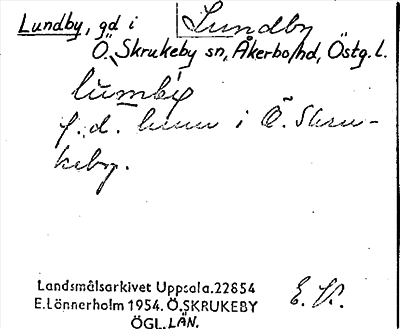 Lundby, gd i Lundby
Ö. Skrukeby sn, Åkerbo hd, Östg. l.
lumby
f. d. hemm i Ö. Skru-
keby.
Landsmålsarkivet Uppsala. 22854 E. V.
E. Lönnerholm 1954. Ö. SKRUKEBY
ÖGL. LÄN.